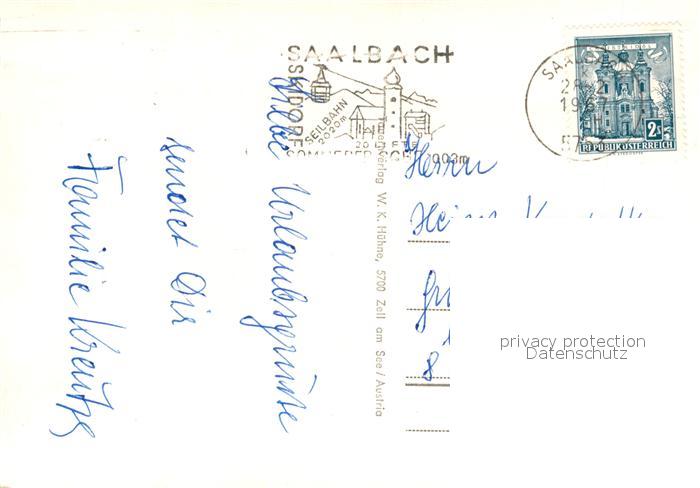 SAALBACH
SKIDORF
SEILBAHN
2020m
1003m
SAALB
1967
2 S
REPUBLIK ÖSTERREICH
Liebe Urlaubsgrüsse
sendet Dir
Familie Kreutzs
Verlag W. K. Hühne, 5700 Zell am See / Austria
Herrn
8
privacy protection
Datenschutz